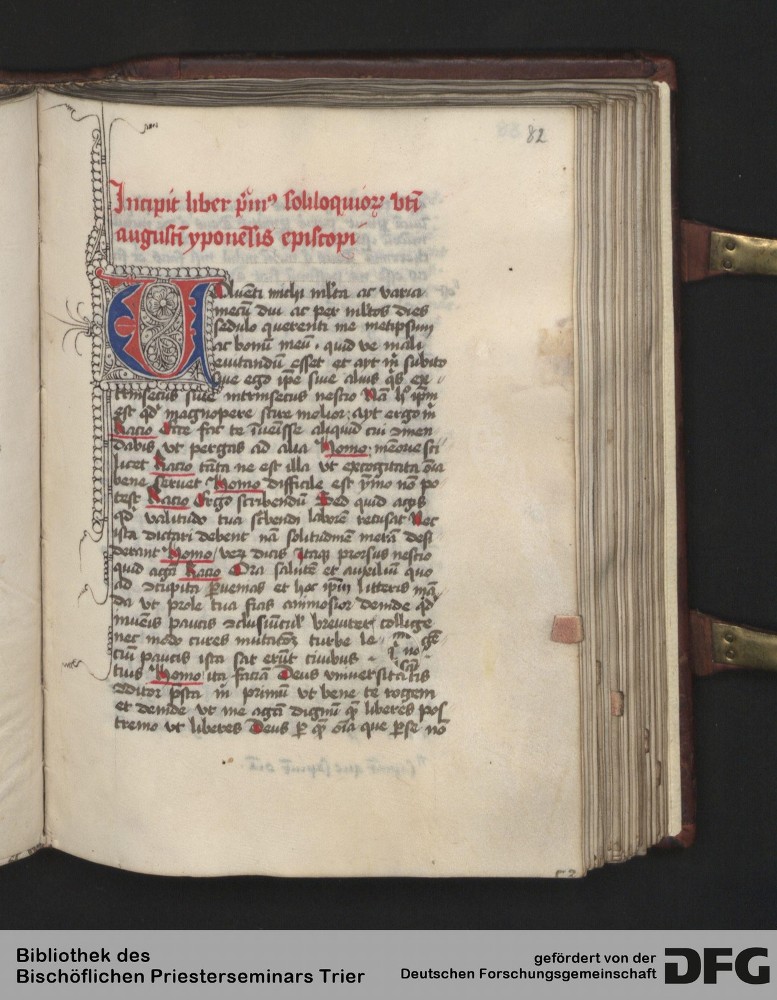 82
Incipit liber p̄m⁹ soliloquioꝝ bt̄i
augustī yponēsis episcopi
Voluenti michi m̄lta ac varia
mecū diu ac per m̄ltos dies
sedulo querenti me metipsum
ac bonū meū . quid ve mali
euitandū esset et ayt m̄ subito
siue ego ip̄e siue alius q̄s ex
trinsecus siue intrinsecus nescio Nā h° ip̄m
est qd̄ magnopere scire molior. Ayt ergo m̄
Racio Ecce fac te īuenisse aliquid cui ɔmen
dabis vt pergas ad alia Homo. memorie sci
licet Racio tāta ne est illa vt excogitata oīa
bene seruet Homo difficile est ymo nō po
test Racio Ergo scribendū Sed quid agis
qd̄ valitudo tua sc̄bendi laborē recusat Nec
ista dictari debent nā solitudinē merā desi
derant Homo / veꝝ dicis Itaqꝫ prorsus nescio
quid agā Racio Ora salutē et auxiliū quo
ad ɔcupita ꝑuenias et hoc ip̄m litteris mā
da vt prole tua fias animosior deinde qd̄
inuenis paucis ɔclusiūcul' breuiter collige
nec modo cures inuitacōꝫ turbe le
ciū paucis ista sat erūt ciuibus
tuis Homo ita faciā Deus vniuersitatis
ɔditor p̄sta m̄ primū vt bene te rogem
et deinde vt me agā dignū q̄ liberes pos
tremo vt liberes Deus ꝑ q̄ oīa que ꝑ se nō
Bibliothek des
Bischöflichen Priesterseminars Trier
gefördert von der
Deutschen Forschungsgemeinschaft
DFG